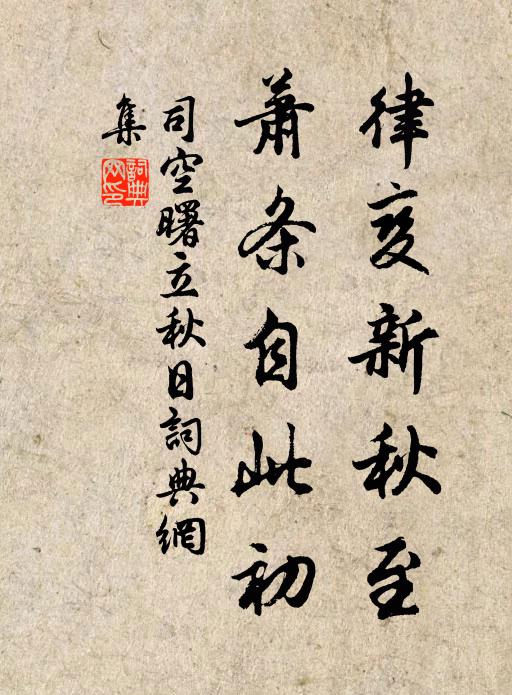 律变新秋至
萧条自此初
司空曙立秋日詞典網
集
詞典
网印